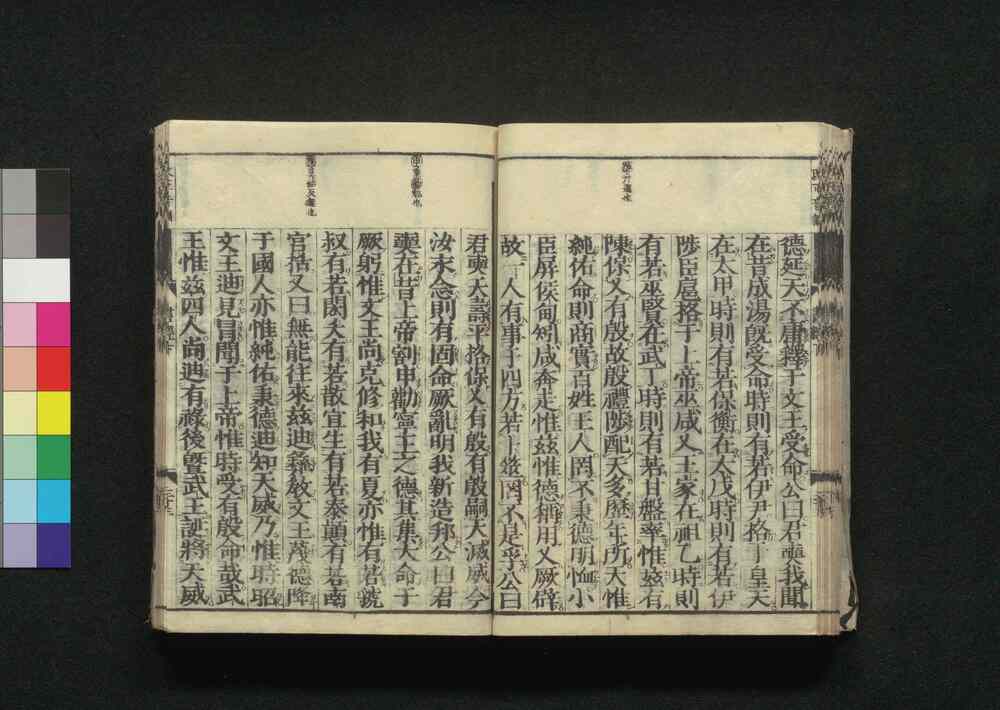 德延天不庸釋于文王受命公曰君奭我聞
在昔成湯旣受命時則有若伊尹格于皇天
在太甲時則有若保衡在太戊時則有若伊
陟臣扈格于上帝巫咸乂王家在祖乙時則
有若巫賢在武丁時則有若甘盤率惟茲有
陳保乂有殷故殷禮陟配天多歷年所天惟
純佑命則商實百姓王人罔不秉德明恤小
臣屏侯甸矧咸奔走惟茲惟德稱用乂厥辟
故一人有事于四方若卜筮罔不是孚公曰
君奭天壽平格保乂有殷有殷嗣天滅威今
汝永念則有固命厥亂明我新造邦公曰君
奭在昔上帝割申勸寧王之德其集大命于
厥躬惟文王尚克修和我有夏亦惟有若虢
叔有若閎夭有若散宜生有若泰顚有若南
宮括又曰無能往來茲迪彝敎文王蔑德降
于國人亦惟純佑秉德迪知天威乃惟時昭
文王迪見冒聞于上帝惟時受有殷命哉武
王惟茲四人尚迪有祿後曁武王誕將天威